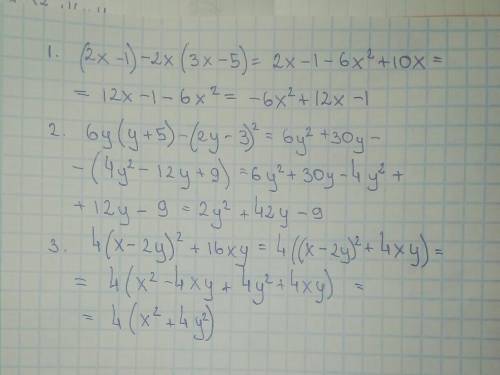 1. (2x-1)-2x(3x-5)= 2x-1-6x²+10x=
= 12x-1-6x²= -6x²+12x-1
2. 6y(y+5)-(2y-3)²=6y²+30y-
-(4y²-12y+9)=6y²+30y-4y²+
+12y-9=2y²+42y-9
3. 4(x-2y)²+16xy=4((x-2y)²+4xy)=
= 4(x²-4xy+4y²+4xy) =
= 4(x²+4y²)